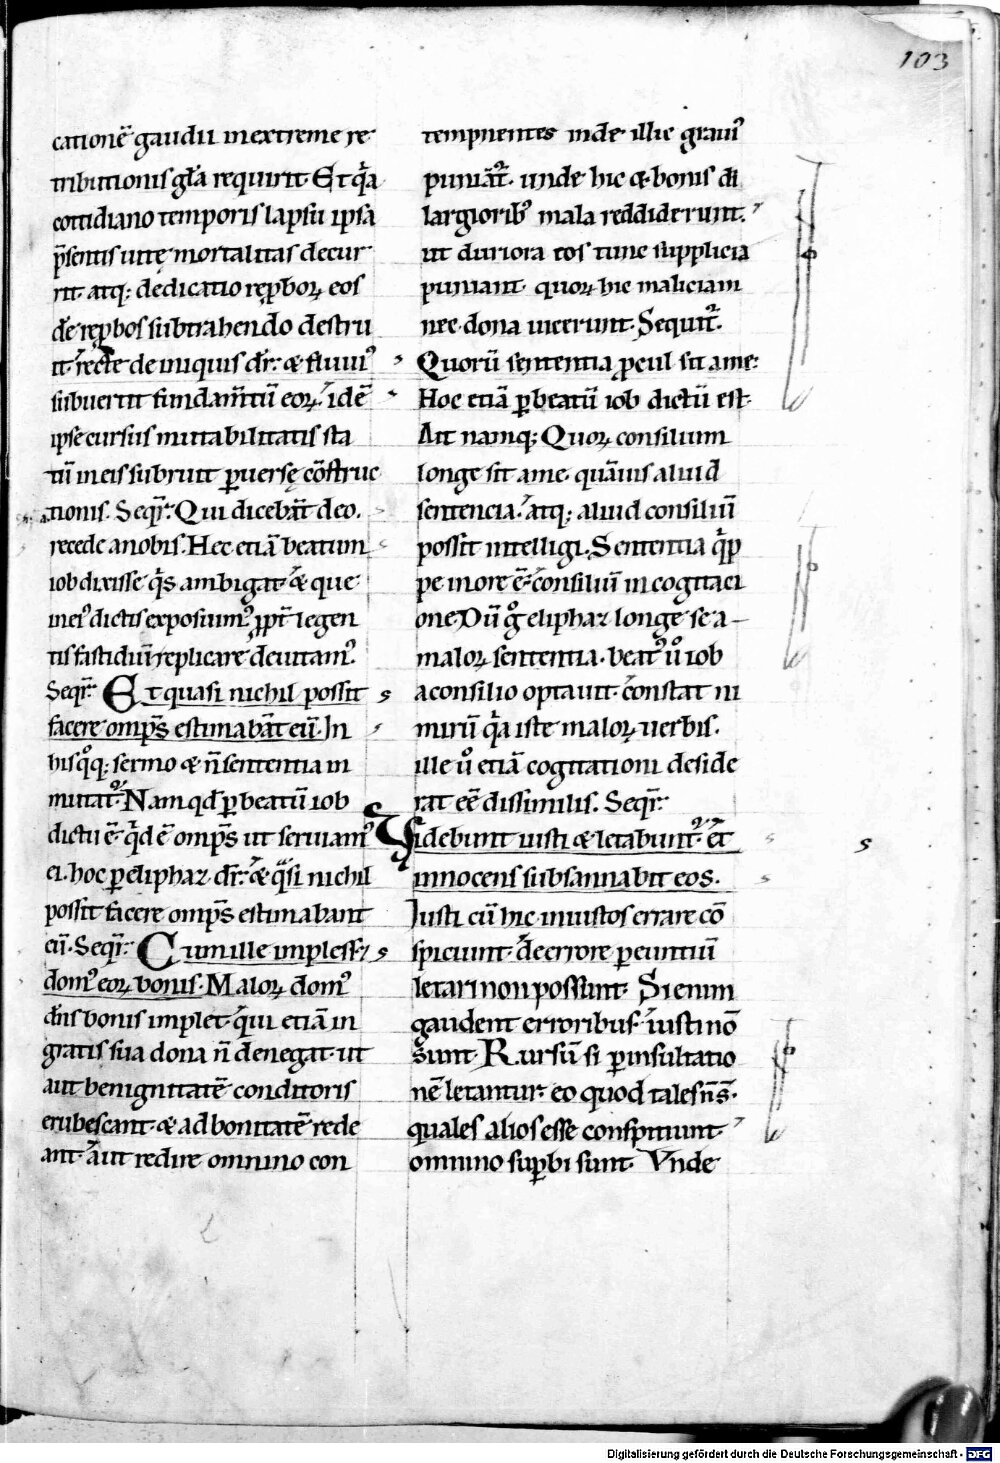 103
cationē gaudii in extreme re
tributionis gl̄a requirit. Et q̄a
cottidiano temporis lapsu ipsa
p̄sentis uitę mortalitas decur
rit. atq; dedicatio reꝓboꝝ eos
de reꝓbos subtrahendo destru
it. recte de iniquis dr̄. & fluuiꝰ
subuertit fundam̄tū eoꝝ. idē
ipse cursus mutabilitatis sta
tū in eis subruit ꝑuersę cōstruc
tionis. Seqr̄. Qui dicebāt deo.
recede a nobis. Hec etiā beatum
iob dixisse q̄s ambigat. & que
in eiꝰ dictis exposuimꝰ ꝓpt̄ legen
tis fastidiū replicare deuitamꝰ.
Seqr̄. Et quasi nichil possit
facere omp̄s estimabāt eū. In
his qͦq; sermo & n̄ sententia in
mutatᷣ. Nam qd̄ ꝑ beatū iob
dictū ē. q̄d ē omp̄s ut seruiamꝰ
ei. hoc ꝑ eliphaz dr̄. & qͣsi nichil
possit facere omp̄s estimabant
eū. Seqr̄. Cum ille impless&
domꝰ eoꝝ bonis. Maloꝝ domꝰ
dn̄s bonis implet. q̄ui etiā in
gratis sua dona n̄ denegat. ut
aut benignitatē conditoris
erubescant. & ad bonitatē rede
ant. aut redire omnino con
tempnentes inde illic grauiꝰ
puniāt̄. unde hic & bonis di
largioribꝰ mala reddiderunt.
ut duriora eos tunc supplicia
puniant. quoꝝ hic maliciam
nec dona uicerunt. Sequit̄.
Quorū sententia ꝓcul sit a me:
Hoc etiā ꝑ beatū iob dictū est.
Ait namq; Quoꝝ consilium
longe sit a me. quāuis aliud
sentencia. atq; aliud consiliū
possit intelligi. Sententia q̄ꝑ
pe in ore ē. consiliū in cogitaci
one. Dū gͦ eliphaz longe se a
maloꝝ sententia. beatꝰ uͦ iob
a consilio optauit. constat ni
mirū q̄a iste maloꝝ uerbis.
ille uͦ etiā cogitationi deside
rat eē dissimilis. Seqr̄.
Videbunt iusti & letabuntᷣ. et
innocens subsannabit eos.
Iusti cū hic iniustos errare cō
spiciunt. de errore ꝑeuntiū
letari non possunt. Si enim
gaudent erroribus. iusti nō
sunt. Rursū si ꝑ insultatio
nē letantur. eo quod tales n̄ s̄.
quales alios esse conspiciunt.
omnino suꝑbi sunt. Vnde
Digitalisierung gefördert durch die Deutsche Forschungsgemeinschaft - DFG